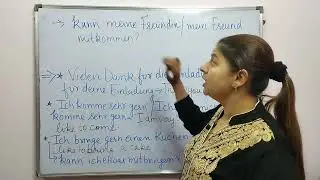 → Kann meine Freundin/mein Freund
mitkommen?
→ * Vielen Dank für die
für deine Einladung →
* Ich komme sehr gern
komme sehr gern
like to come.
* Ich bringe gern einen Kuchen
like to bring a cake
Kann ich etwas mitbringen